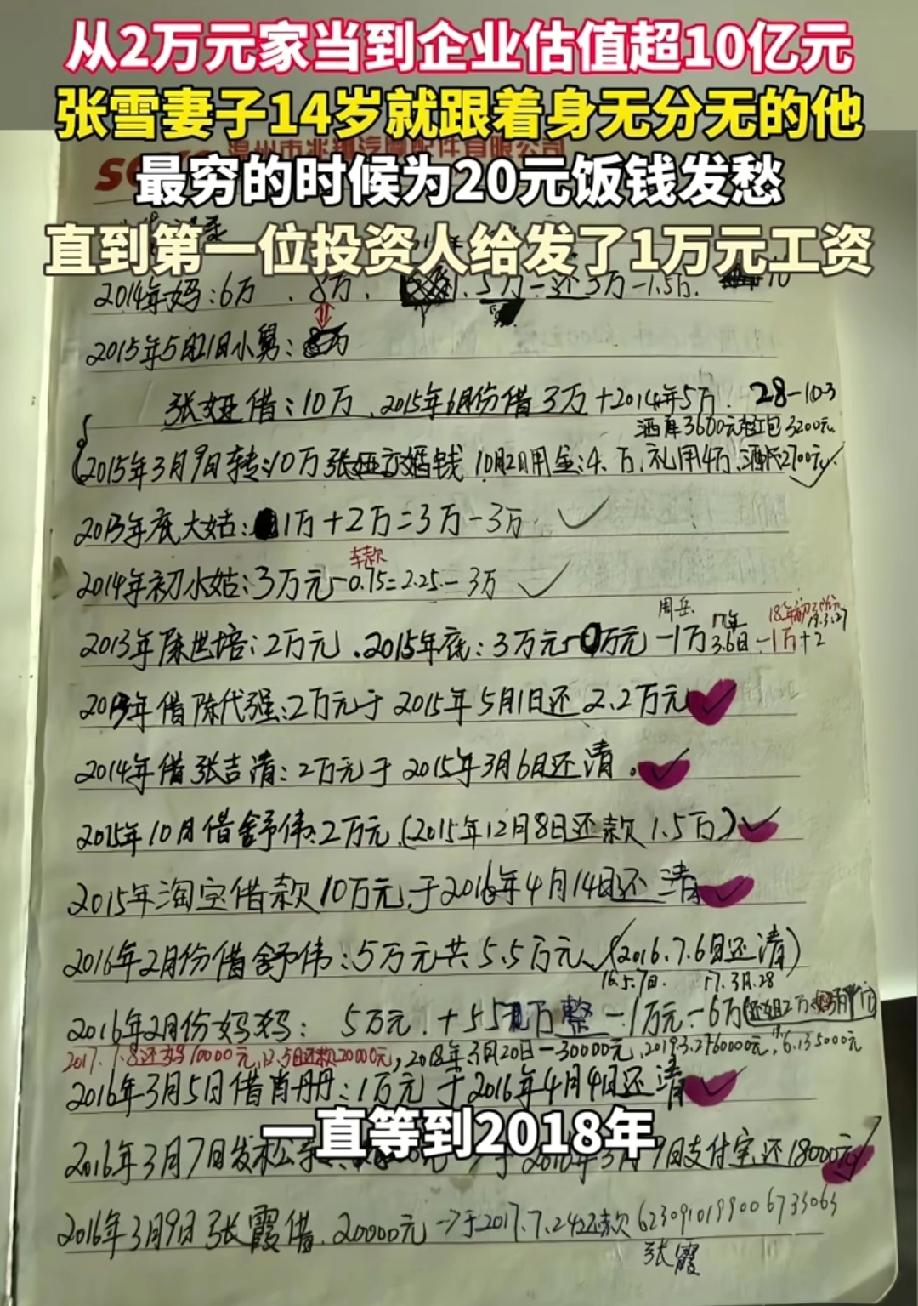 从2万元家当到企业估值超10亿元
张雪妻子14岁就跟着身无分无的他
最穷的时候为20元饭钱发愁
直到第一位投资人给发了1万元工资
2014年妈:6万、8万、5万-还3万-1.5万.
2015年5月21日小舅:
张娅借:10万、2015年6月份借3万+2014年5万 28-103
酒席3600元 3200元
2015年3月9日转:10万张娅 婚钱 10月2日用金:4.万,礼用4万,酒 2100元✓
2013年底大姑:1万+2万=3万-3万 ✓
车款
2014年初小姑:3万元-0.75=2.25-3万 ✓
周岳 17年
2013年 世培:2万元、2015年底:3万元-0万元-1万 3.6日-1万+2
年借陈代强:2万元于2015年5月1日还2.2万元✓
2014年借张吉清:2万元于2015年3月6日还清.✓
2015年10月借舒伟:2万元(2015年12月8日还款1.5万)✓
2015年淘宝借款10万元于2016年4月14日还清✓
2016年2月份借舒伟:5万元共5.5万元✓(2016.7.6日还清)
16.5.7日 17.3月.28
2016年2月份妈妈: 5万元+5万整-1万元-6万
2017.7.8还妈10000元,12.5日还款20000元,2018年3月20日-30000元,2019.3.2760000元,6.135000元
2016年3月5日借肖丹丹:1万元于2016年4月4日还清✓
一直等到2018年
2016年3月7日 于2016年3月9日支付宝还18000元✓
2016年3月9日张霞借.20000元→于2017.7.24还款
张霞